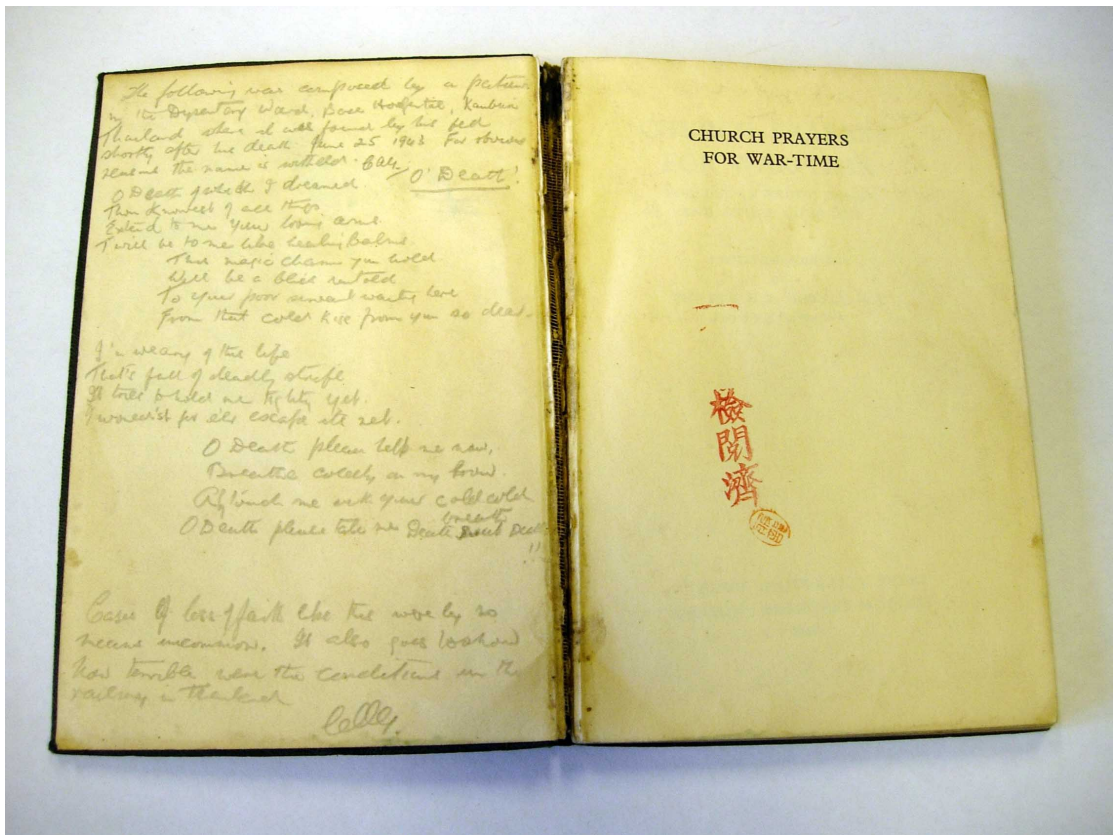 The following was composed by a patient
in the Dysentery Ward, Base Hospital, Kanburi
Thailand where it was found by his bed
shortly after his death June 25 1943 For obvious
reasons the name is withheld.
O' Death!
O Death of which I dreamed
Thou knowest of all things
Extend to me your loving arms
Twill be to me like healing Balms
That magic charm you hold
Will be a bliss untold
To your poor servant waiting here
From that cold kiss from you so dear
I'm weary of this life
That's full of deadly strife
It tries to hold me tightly yet
escape its net.
O Death please help me now,
Breathe coldly on my brow.
me with your cold cold
breath
O Death please take me Death Sweet Death
!!
Cases of loss of faith like this were by no
means uncommon. It also goes to show
how terrible were the conditions in the
railway in Thailand
CHURCH PRAYERS
FOR WAR-TIME
檢閲濟